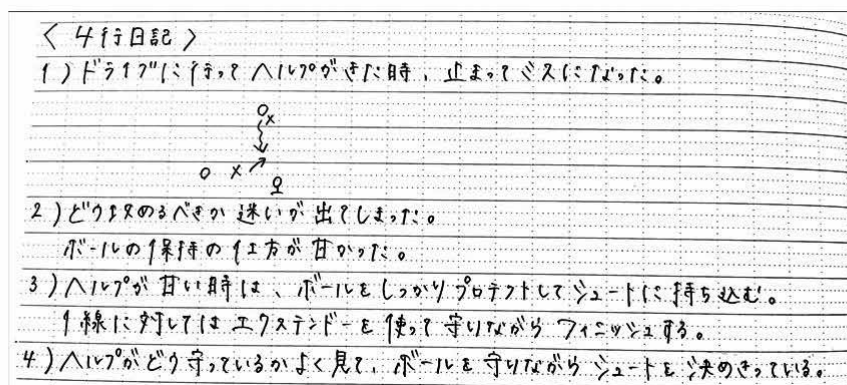 〈 4行日記 〉
1)ドライブに行って ヘルプがきた時、止まって ミスになった。
2)どう攻めるべきか 迷いが 出てしまった。
ボールの保持の仕方が 甘かった。
3)ヘルプが 甘い時は、ボールを しっかり プロテクトして シュートに 持ち込む。
1線に対しては エクステンドーを 使って 守りながら フィニッシュする。
4)ヘルプが どう守っているか よく見て、ボールを 守りながら シュートを 決めきっている。